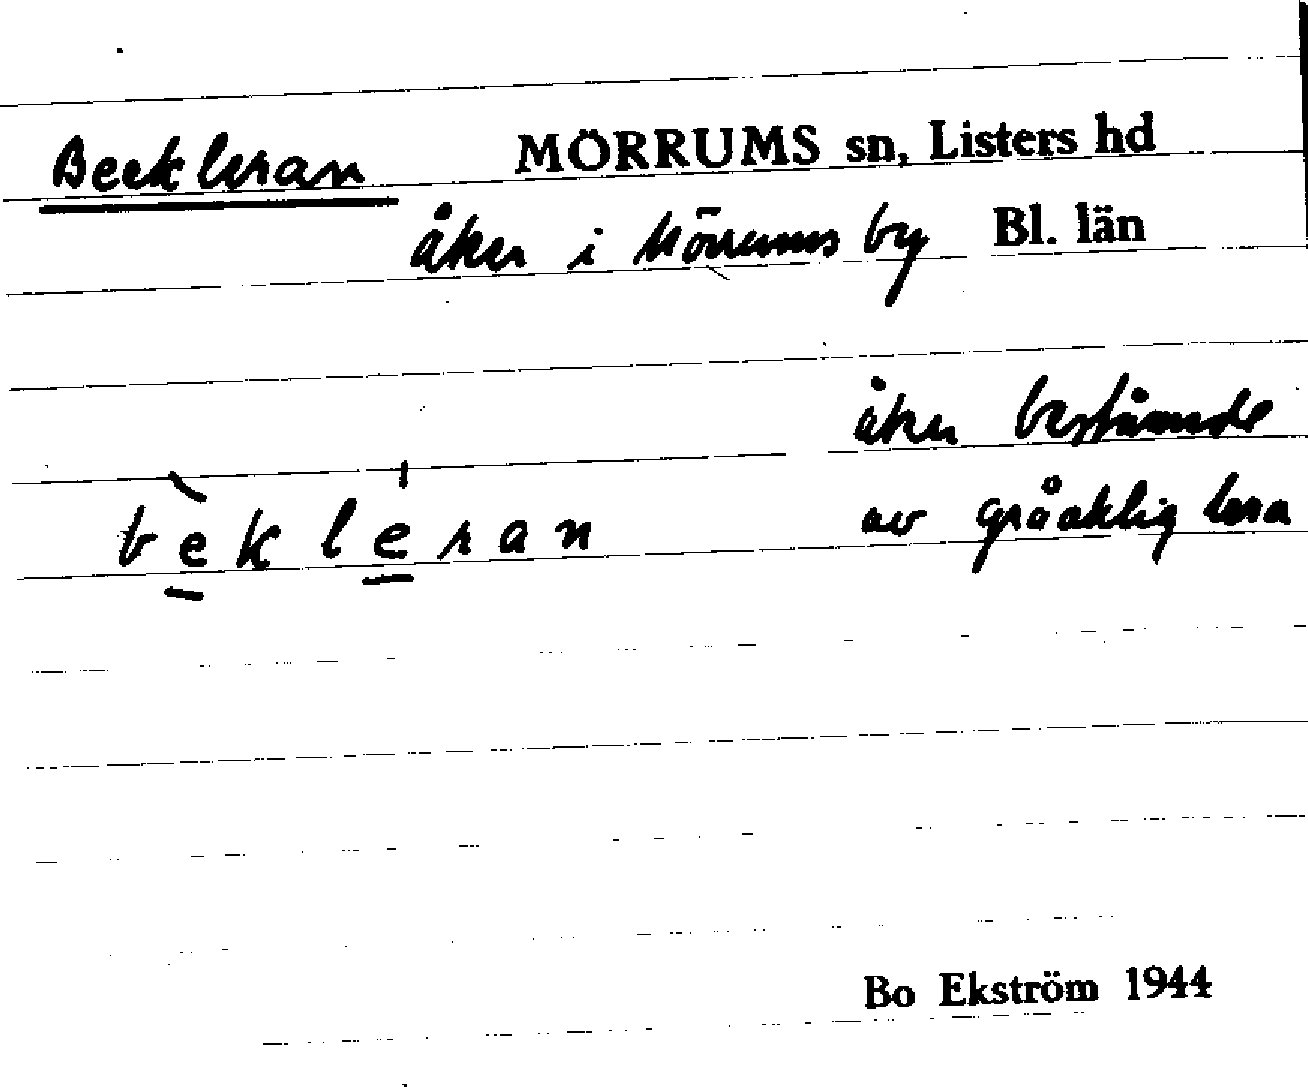 Beckleran MÖRRUMS sn, Listers hd
åker i Mörrums by Bl. län
åker bestående
bèkleran av gråaktig lera
Bo Ekström 1944